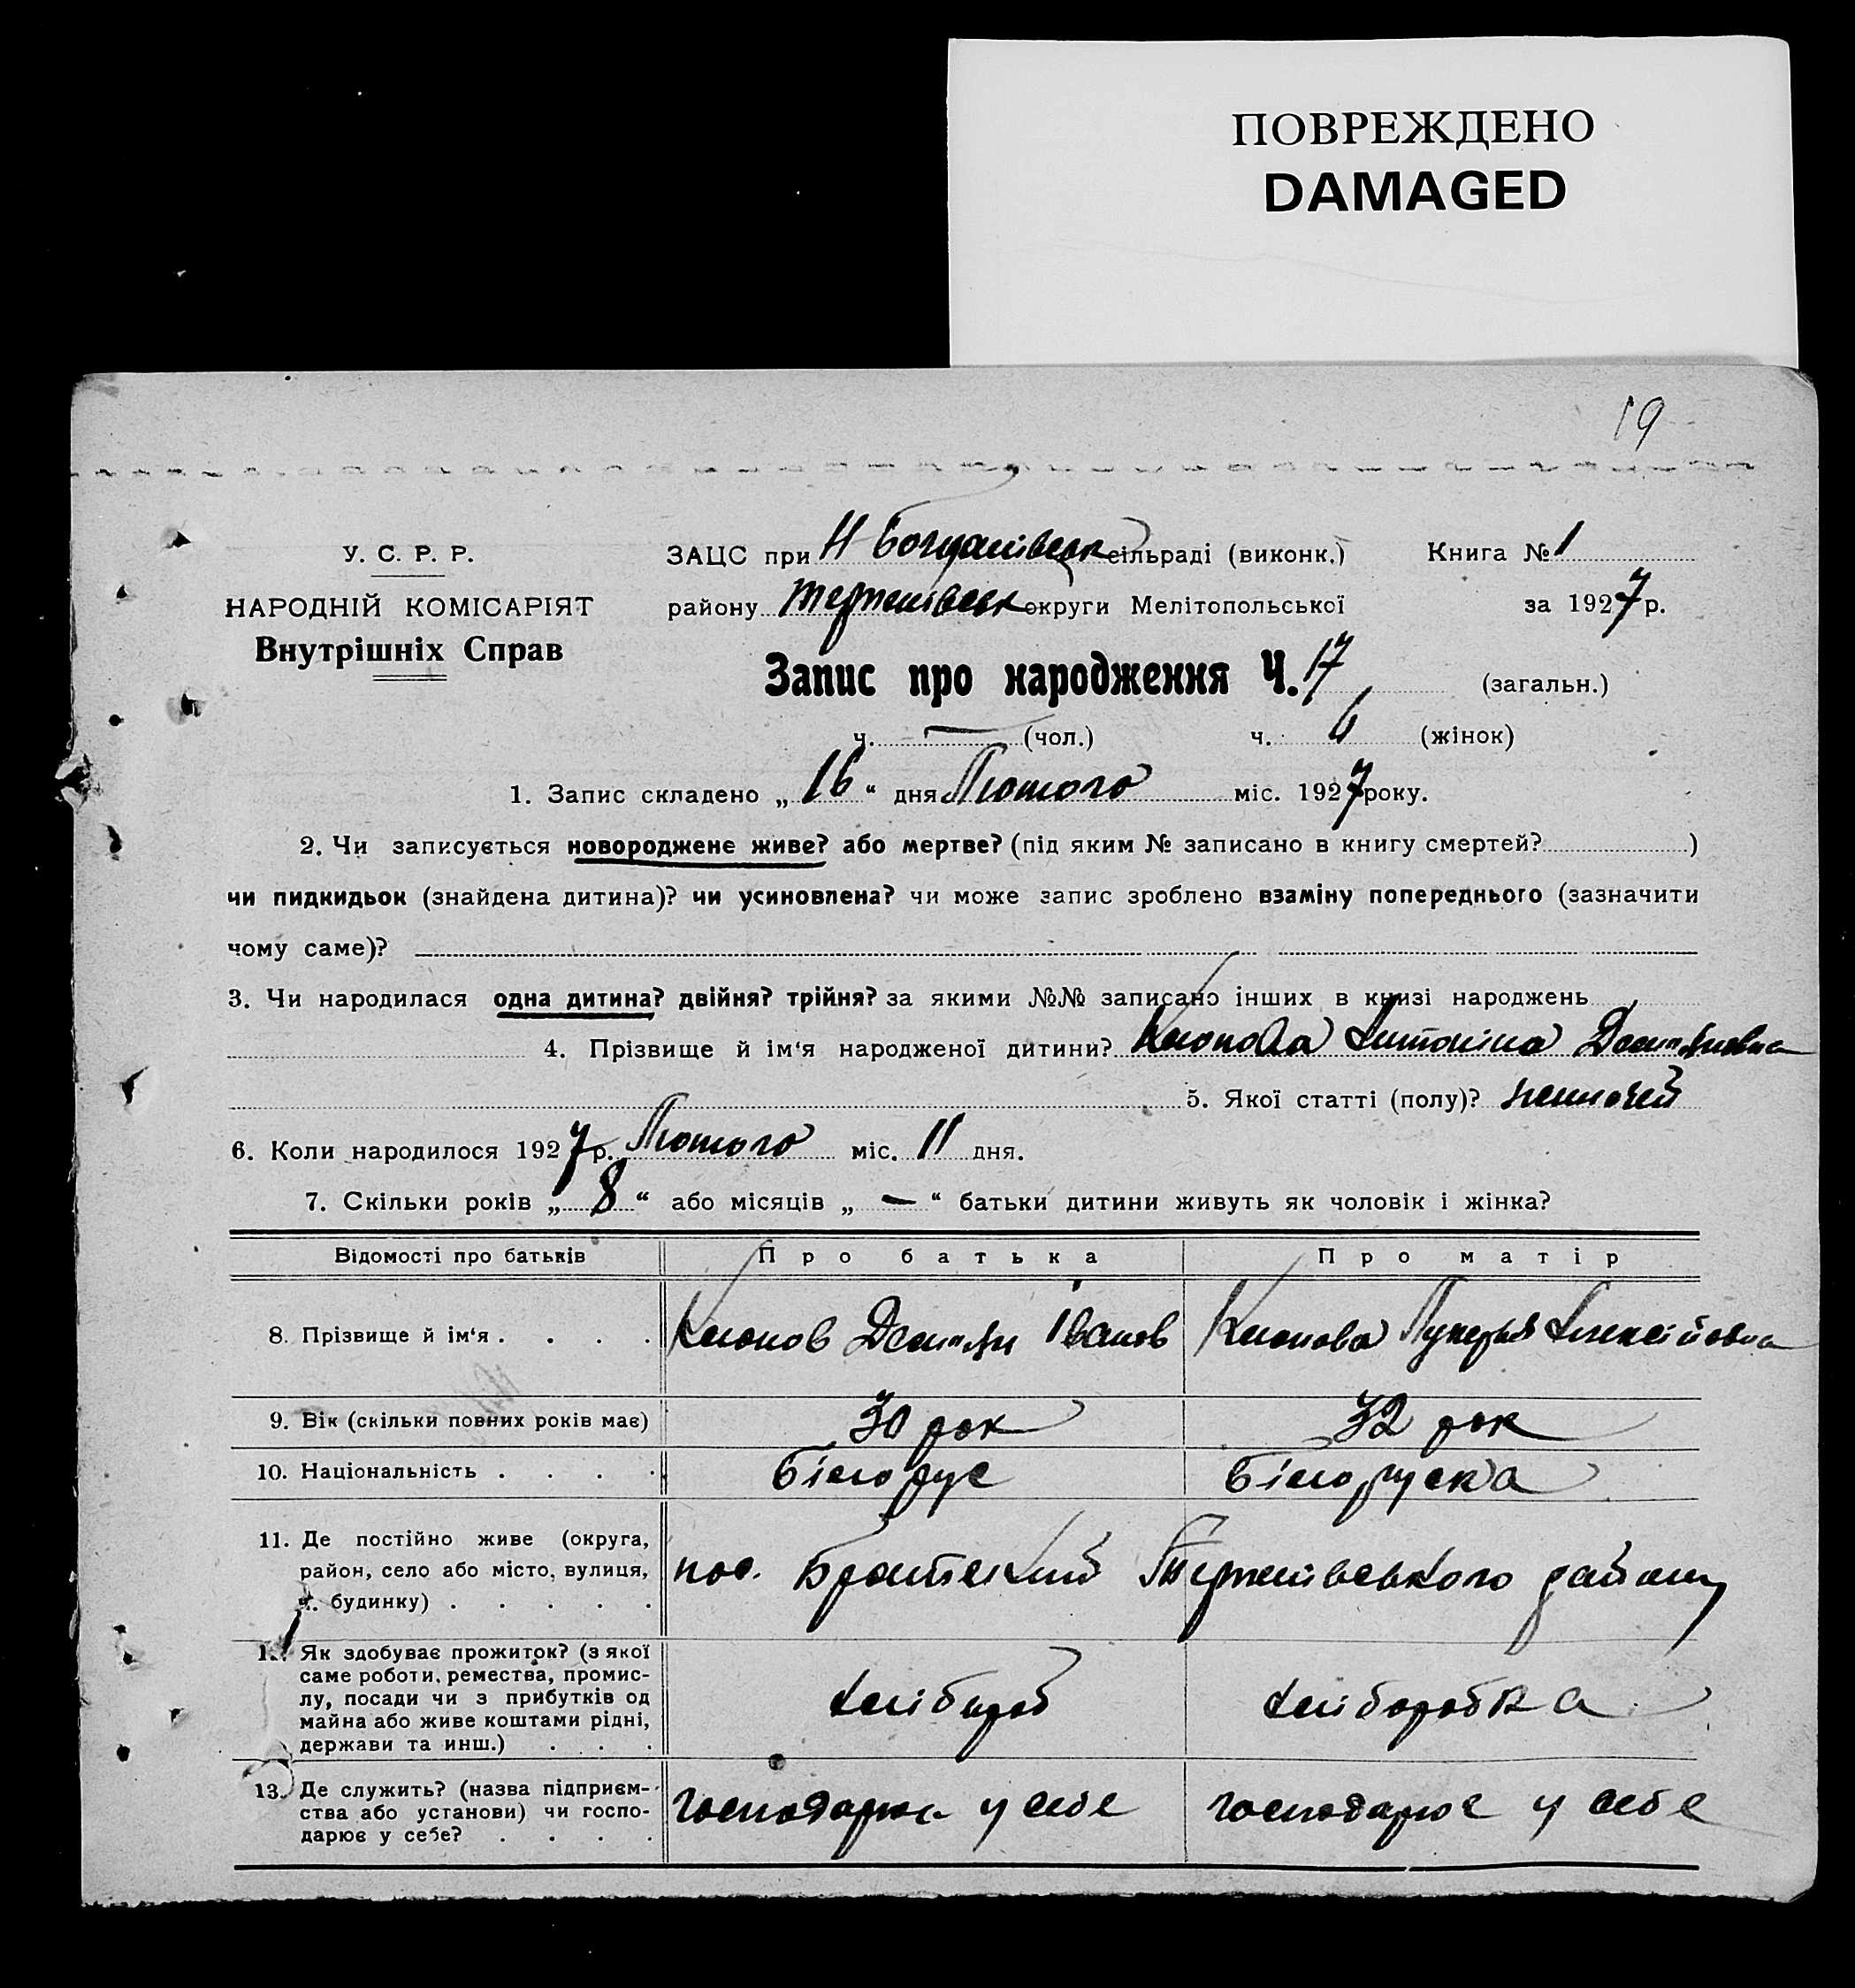 ПОВРЕЖДЕНО
DAMAGED
19
У. С. Р. Р.
НАРОДНІЙ КОМІСАРІЯТ
Внутрішніх Справ
ЗАЦС при Н Богданівськ сільраді (виконк.) Книга № 1
району Терпенівськ округи Мелітопольської за 1927 р.
Запис про народження Ч. 17 (загальн.)
ч. — (чол.) ч. 6 (жінок)
1. Запис складено „ 16 “ дня Лютого міс. 1927 року.
2. Чи записується новороджене живе? або мертве? (під яким № записано в книгу смертей? )
чи пидкидьок (знайдена дитина)? чи усиновлена? чи може запис зроблено взаміну попереднього (зазначити
чому саме)?
3. Чи народилася одна дитина? двійня? трійня? за якими №№ записано інших в книзі народжень
4. Прізвище й ім‘я народженої дитини? Антоніна
5. Якої статті (полу)?
6. Коли народилося 1927 р. Лютого міс. 11 дня.
7. Скільки років „ 8 “ або місяців „ — “ батьки дитини живуть як чоловік і жінка?
Відомості про батьків Про батька Про матір
8. Прізвище й ім‘я . . . . Іванов Лукерья Алексійовна
9. Вік (скільки повних років має) 30 рок 32 рок
10. Національність . . . . Білорус Білоруска
11. Де постійно живе (округа,
район, село або місто, вулиця,
ч. будинку) . . . . .
пос. Братский Терпенівського району
Як здобуває прожиток? (з якої
саме роботи, ремества, промис-
лу, посади чи з прибутків од
майна або живе коштами рідні,
держави та инш.) . . .
хлібороб хліборобка
13. Де служить? (назва підприєм-
ства або установи) чи госпо-
дарює у себе? . . . .
господарює у себе господарює у себе